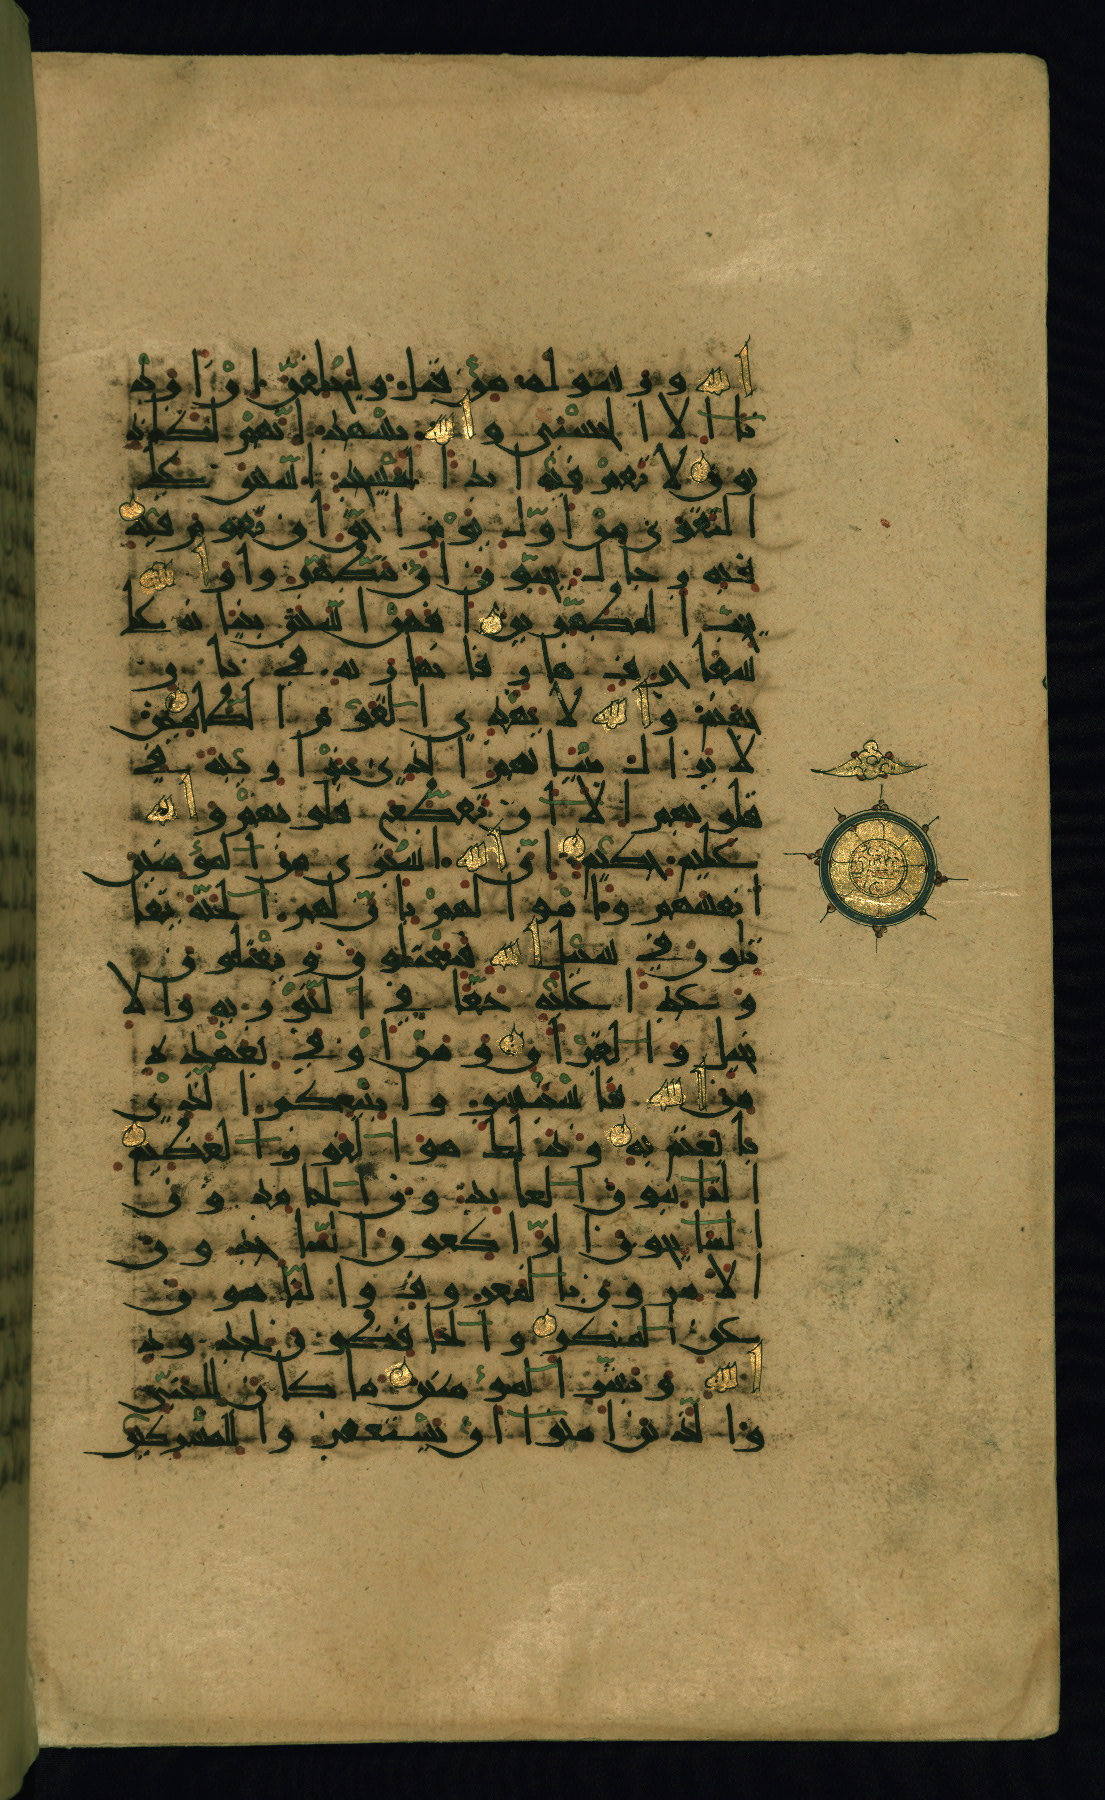 الله ورسوله من قبل وليحلفن إن أرد
نا إلا الحسنى والله يشهد إنهم لكاذ
بون لا تقم فيه أبدا لمسجد أسس على
التقوى من أول يوم أحق أن تقوم فيه
فيه رجال يحبون أن يتطهروا والله
يحب المطهرين أفمن أسس بنيانه على
شفا جرف هار فانهار به في نار
جهنم والله لا يهدي القوم الظالمين
لا يزال بنيانهم الذي بنوا ريبة في
قلوبهم إلا أن تقطع قلوبهم والله
عليم حكيم إن الله اشترى من المؤمنين
أنفسهم وأموالهم بأن لهم الجنة يقا
تلون في سبيل الله فيقتلون ويقتلون
وعدا عليه حقا في التورية والا
نجيل والقرآن ومن أوفى بعهده
من الله فاستبشروا ببيعكم الذي
بايعتم به وذلك هو الفوز العظيم
التائبون العابدون الحامدون
السائحون الراكعون الساجدون
الآمرون بالمعروف والناهون
عن المنكر والحافظون لحدود
الله وبشر المؤمنين ما كان للنبي
والذين آمنوا أن يستغفروا للمشركين